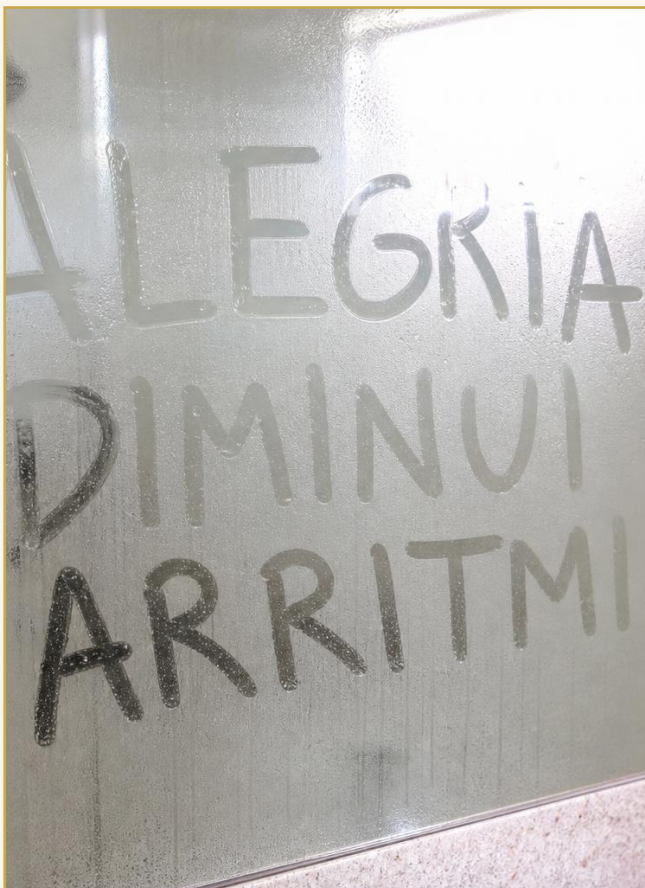 ALEGRIA
DIMINUI
ARRITMI